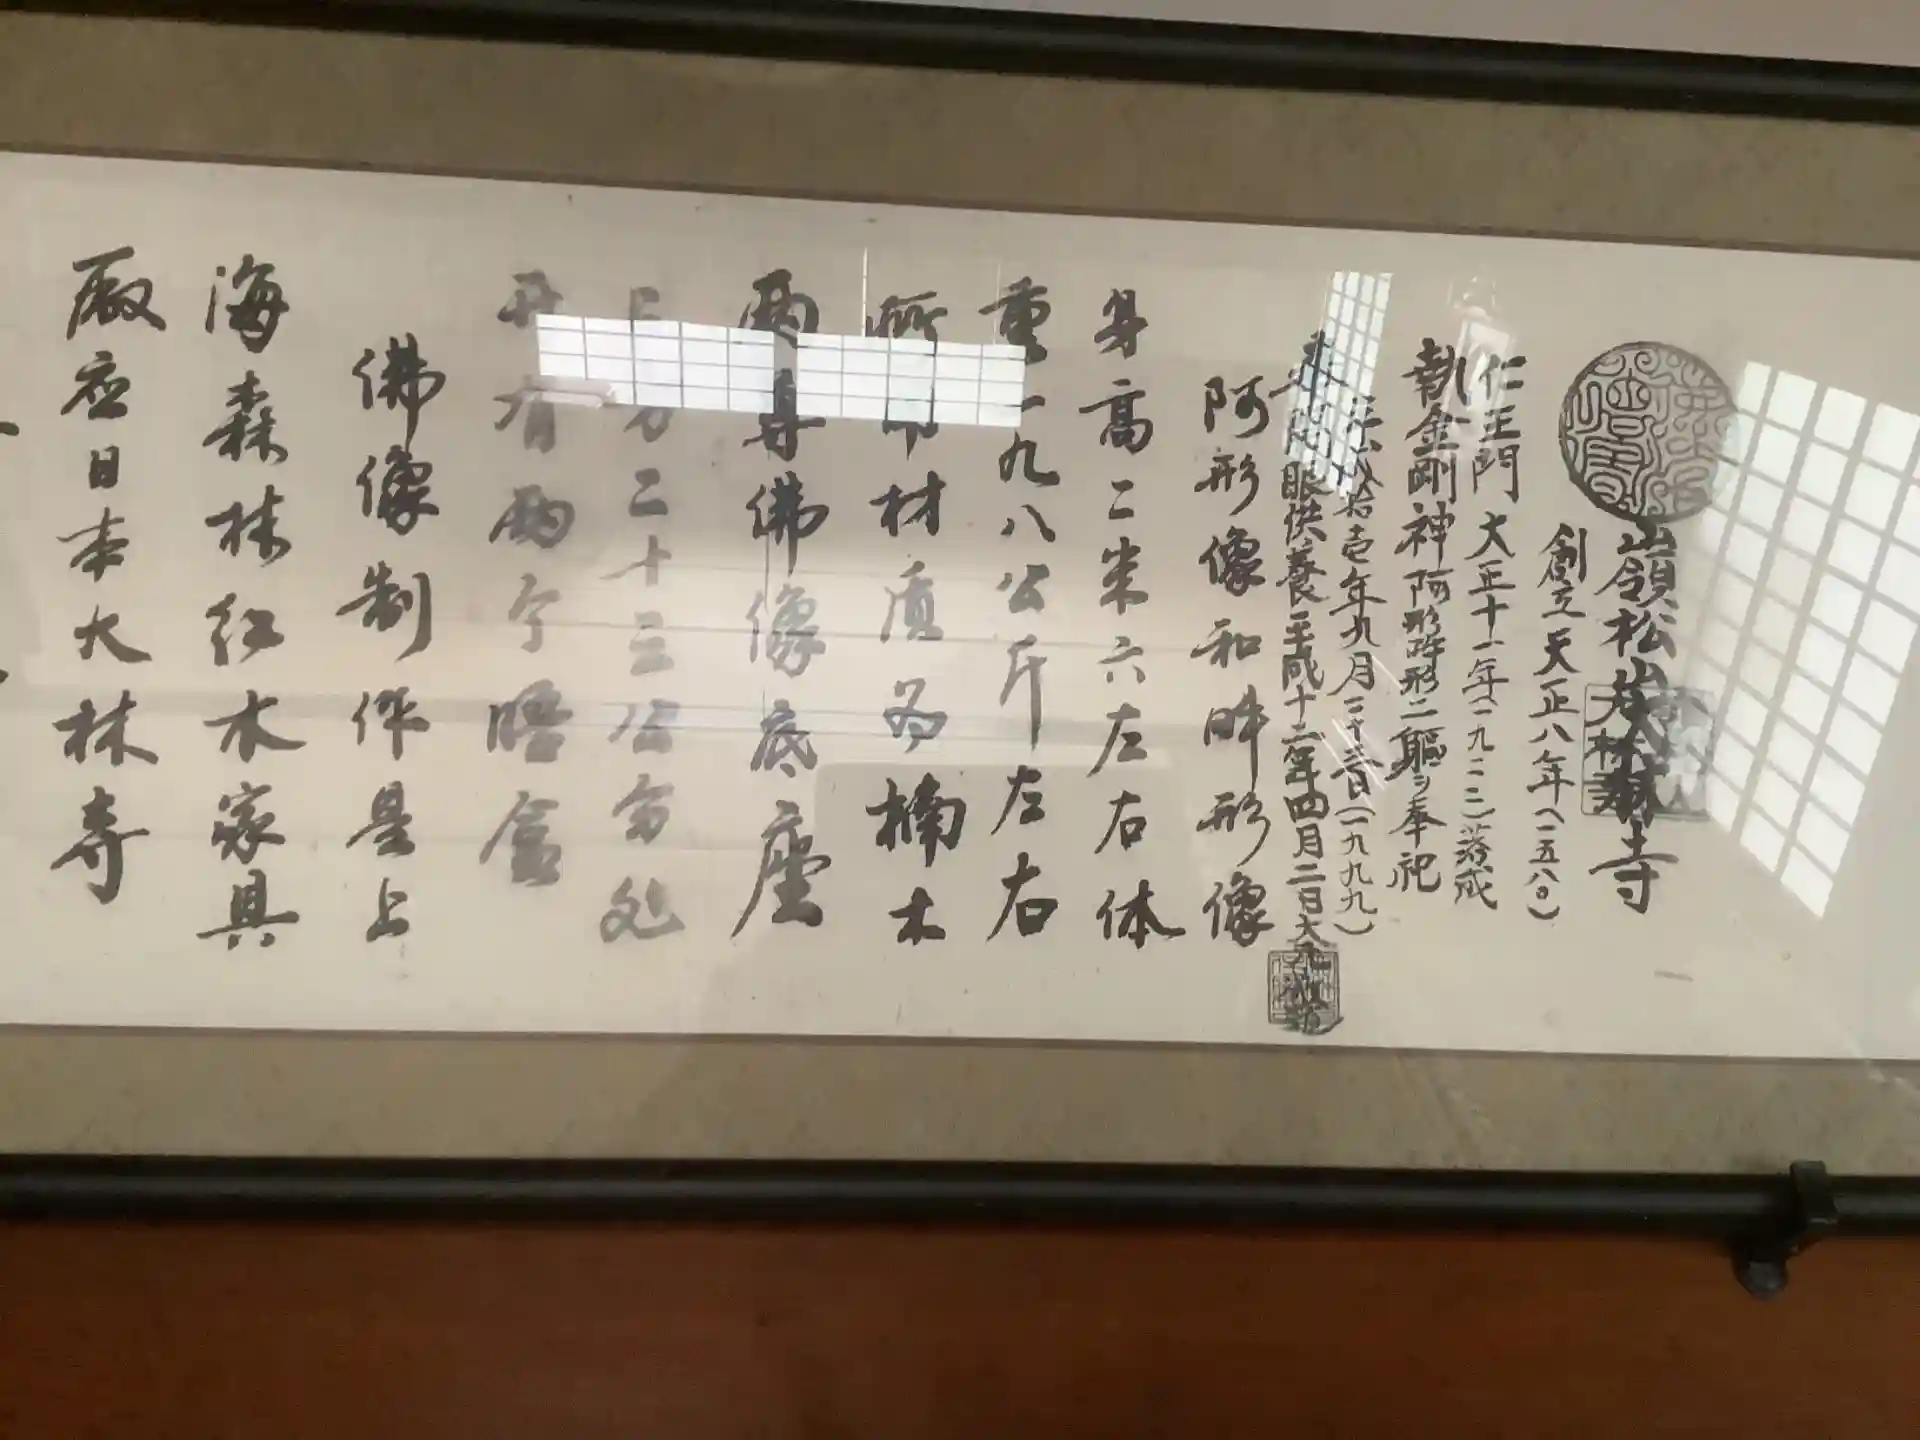 山嶺松山大林寺
創立天正八年(一五八〇)
仁王門 大正十一年(一九二二)落成
執金剛神阿形吽形二軀ヲ奉祀
平成拾壱年九月二十三日(一九九九)
開眼供養 平成十二年四月二日
阿形像和吽形像
身高二米六左右体
重一九八公斤左右
所用材质为楠木
两尊佛像底座
上方二十三公分处
开有两个暗盒
佛像制作是上
海森林红木家具
厰应日本大林寺